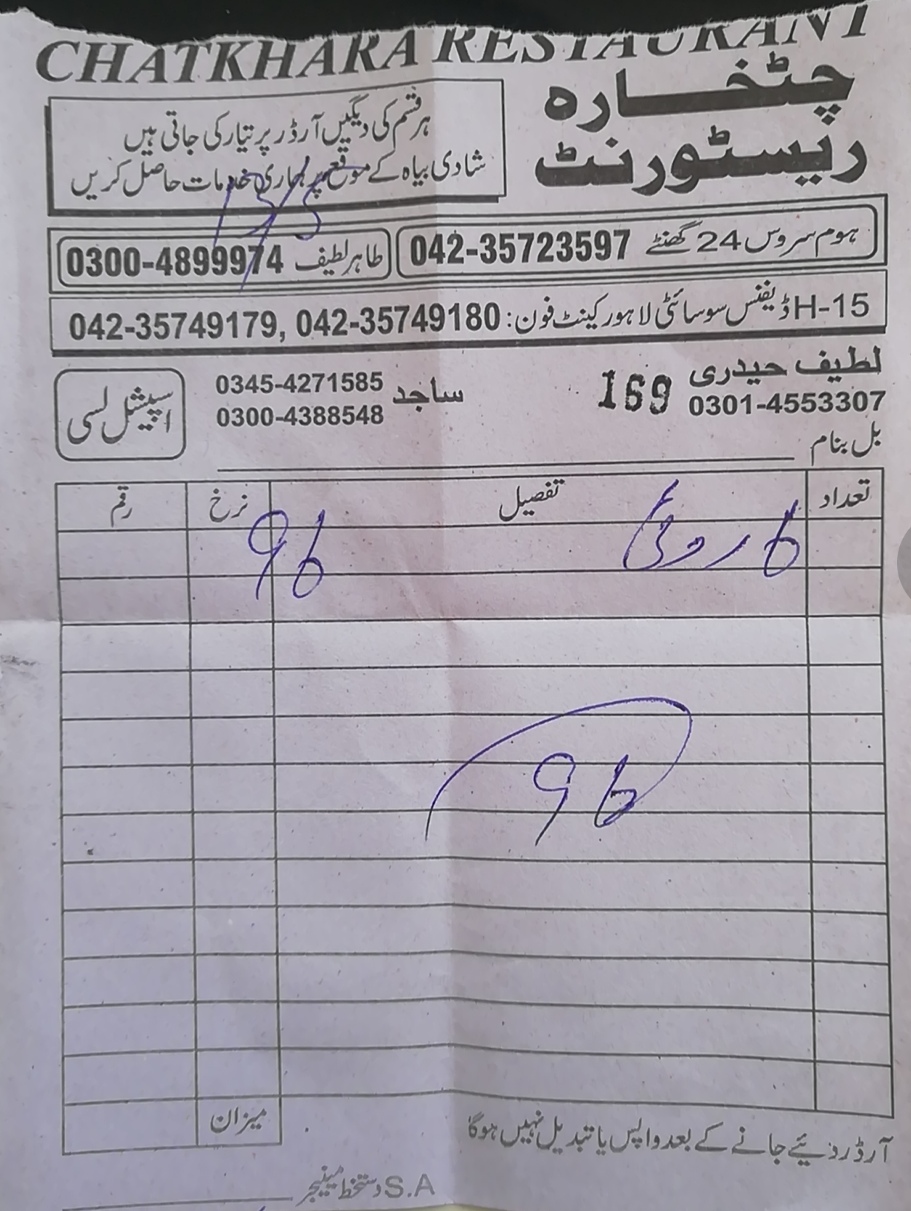 CHATKHARA RESTAURANT
چٹخارہ
ریسٹورنٹ
ہر قسم کی دیگیں آرڈر پر تیار کی جاتی ہیں
شادی بیاہ کے موقع پر ہماری خدمات حاصل کریں
ہوم سروس 24 گھنٹے 042-35723597
طاہر لطیف 0300-4899974
H-15 ڈیفنس سوسائٹی لاہور کینٹ فون: 042-35749180, 042-35749179
لطیف حیدری
0301-4553307
169
ساجد 0345-4271585
0300-4388548
اسپیشل لسی
بل بنام
تعداد تفصیل نرخ رقم
6 روٹی 96
96
میزان
آرڈر دئیے جانے کے بعد واپس یا تبدیل نہیں ہوگا
S.A دستخط مینیجر